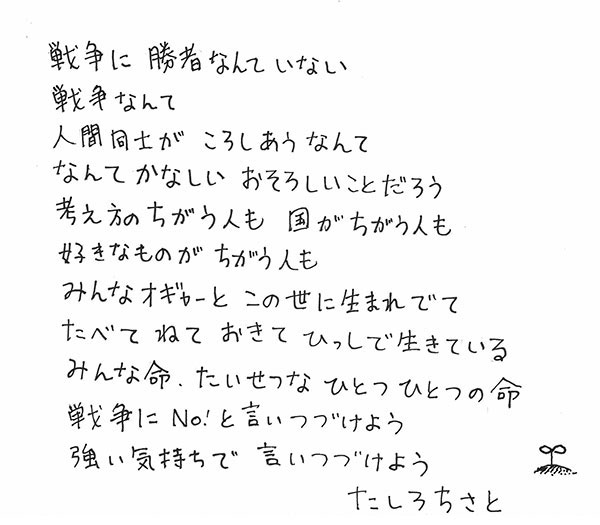 戦争に 勝者なんていない
戦争なんて
人間同士が ころしあうなんて
なんてかなしい おそろしいことだろう
考え方のちがう人も 国がちがう人も
好きなものが ちがう人も
みんなオギャーと この世に生まれでて
たべて ねて おきて ひっしで生きている
みんな命、たいせつな ひとつひとつの命
戦争にNo!と言いつづけよう
強い気持ちで 言いつづけよう
たしろちさと